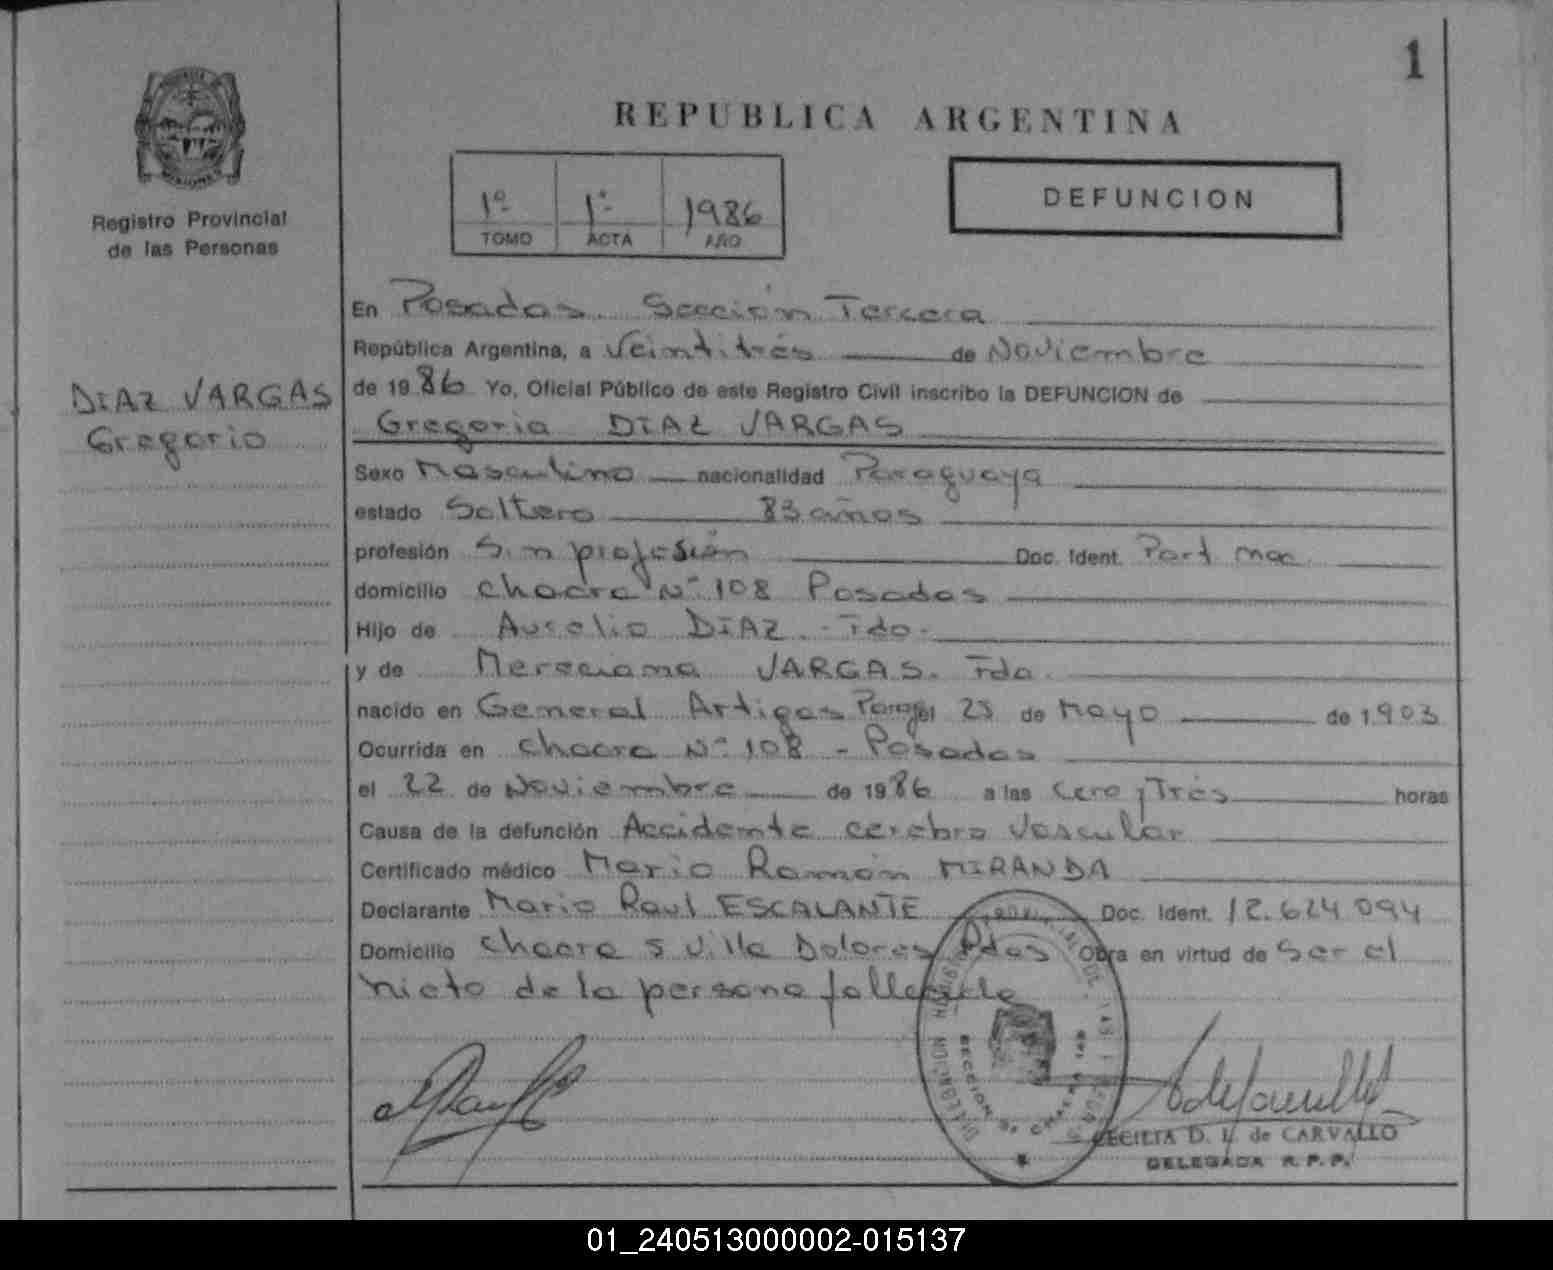 1
REPUBLICA ARGENTINA
Registro Provincial
de las Personas
1º 1º 1986
TOMO ACTA AÑO
DEFUNCION
DIAZ VARGAS
Gregorio
En Posadas. Sección Tercera
República Argentina, a Veintitrés de Noviembre
de 1986 Yo, Oficial Público de este Registro Civil inscribo la DEFUNCION de
Gregorio DIAZ VARGAS
Sexo Masculino nacionalidad Paraguaya
estado Soltero 83 años
profesión Sin profesión Doc. Ident. Part. Nac.
domicilio Chacra Nº 108 Posadas
Hijo de Aurelio DIAZ. Fdo.
y de VARGAS. Fda.
nacido en General Artigas Parag. el 25 de Mayo de 1903
Ocurrida en Chacra Nº 108 - Posadas
el 22 de Noviembre de 1986 a las Cero y Tres horas
Causa de la defunción Accidente cerebro Vascular
Certificado médico Mario Ramón MIRANDA
Declarante Mario Raul ESCALANTE Doc. Ident. 12.624.094
Domicilio Chacra 5 Villa Dolores Pdas Obra en virtud de Ser el
nieto de la persona fallecida
CECILIA D. L. de CARVALLO
DELEGADA R.P.P.
01_240513000002-015137